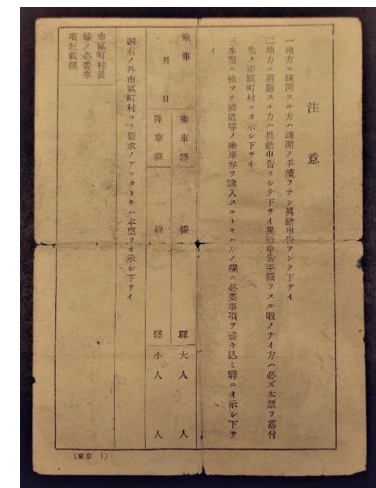 注意
一地方ニ疎開スル方ハ疎開ノ手續ヲナシ異動申告ヲシテ下サイ
二地方ニ避難スル方ハ異動申告ヲシテ下サイ異動申告手續ヲスル暇ノナイ方ハ必ズ本票ヲ落付
先ノ市區町村ニオ示シ下サイ
三本票ニ依ツテ鐵道等ノ乘車券ヲ購入スルトキハ左ノ欄ニ必要事項ヲ書キ込ミ驛ニオ示シ下サ
イ
乘車 月 日
乘車驛 線 驛 大人 人
降車驛 線 驛 小人 人
四右ノ外市區町村ヨリ要求ノアツタトキハ本票ヲオ示シ下サイ
市區町村長
等ノ必要事
項記載欄
(東京 1)